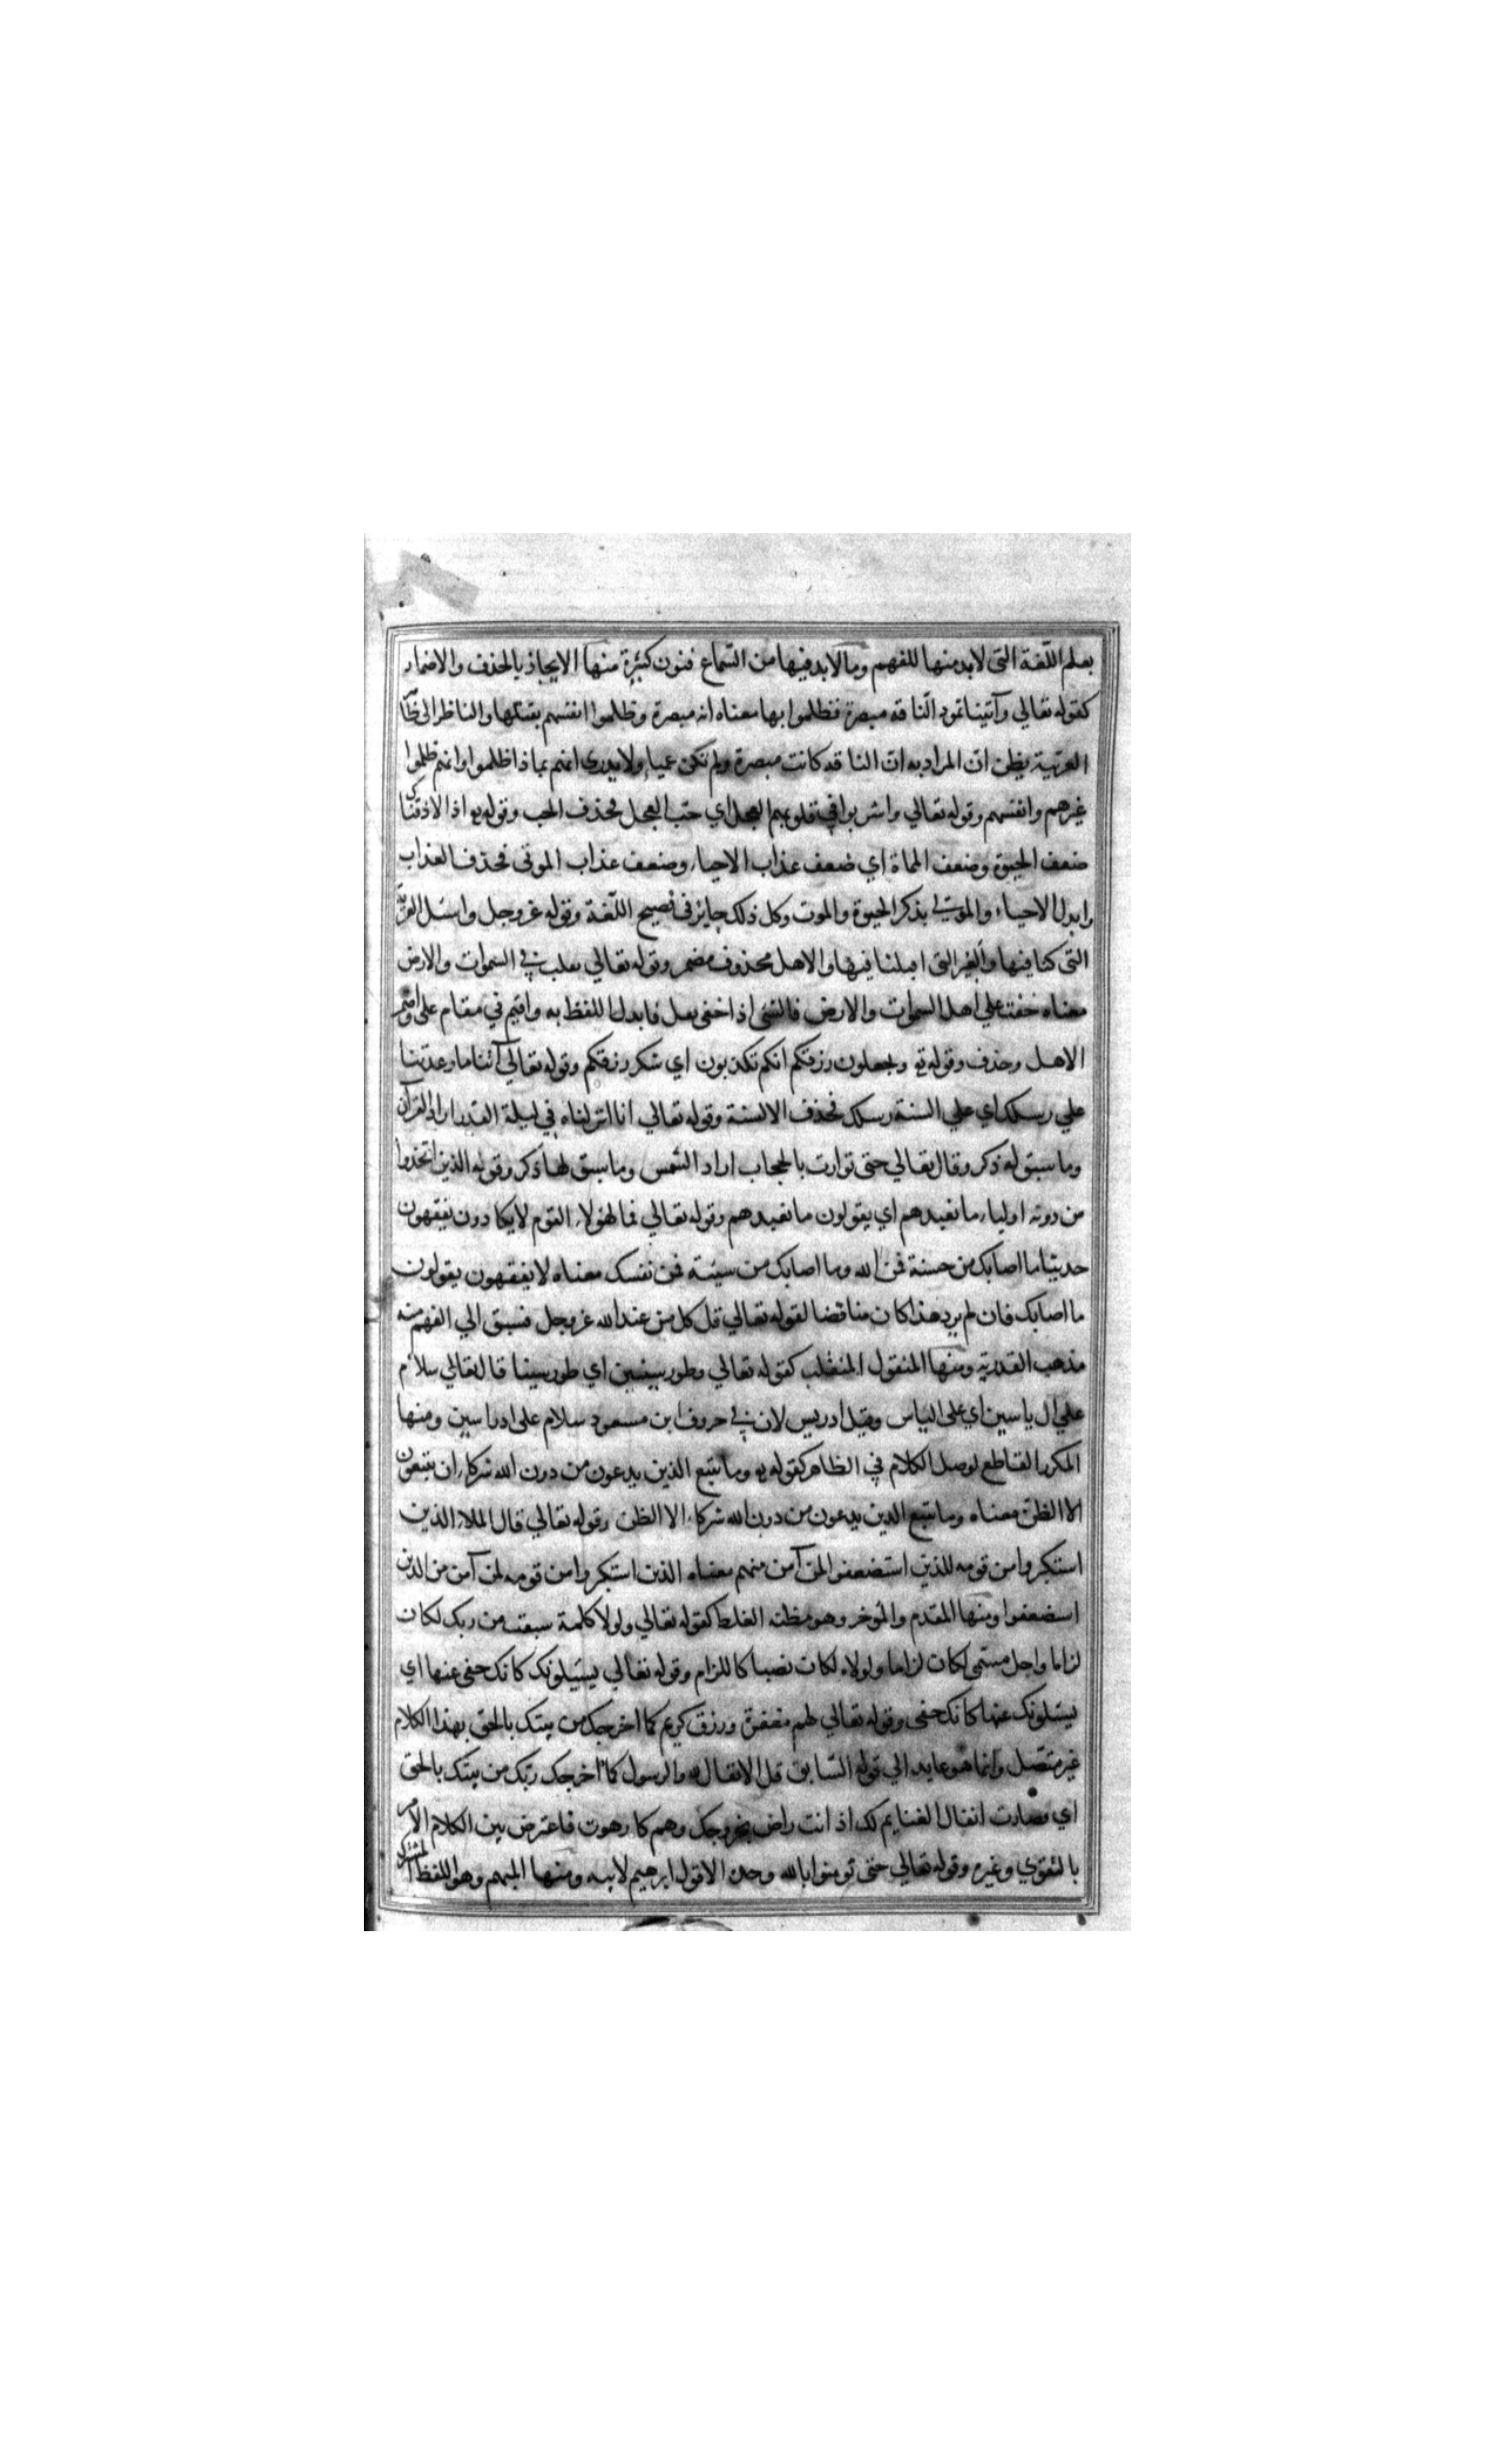 بعلم اللّغة التى لابد منها للفهم وما لابد فيها من السّماع فنون كثيرة منها الايجاز بالحذف والاضمار
كقوله تعالي وآتينا ثمود النّاقة مبصرة فظلموا بها معناه انه مبصرة وظلموا انفسهم بقتلها والناظر الى ظاهر
العربّية يظن ان المراد به ان الناقة كانت مبصرة ولم تكن عمياء ولا يدرى انهم بماذا ظلموا وانهم ظلموا
غيرهم وانفسهم وقوله تعالي واشربوا في قلوبهم العجل اي حبّ العجل فحذف الحب وقوله يو اذا لاذقناك
ضعف الحيوة وضعف المماة اي ضعف عذاب الاحياء وضعف عذاب الموتى فحذف العذاب
وابدل الاحياء والموتى بذكر الحيوة والموت وكل ذلك جايز فى فصيح اللّغة وقوله عز وجل واسئل القرية
التى كنا فيها والعير التى اقبلنا فيها والاهل محذوف مضمر وقوله تعالي نقلب في السموات والارض
معناه خفت علي اهل السموات والارض فالشئ اذا خفى نقل فابدل اللفظ به واقيم في مقام على واضمر
الاهل وحذف وقوله ته وتجعلون رزقكم انكم تكذبون اي شكر رزقكم وقوله تعالي آتنا ما وعدتنا
علي رسلك اي علي السنة رسلك فحذف الالسنة وقوله تعالي انا انزلناه في ليلة القدر اراد القرآن
وما سبق له ذكر وقال تعالي حتى توارت بالحجاب اراد الشمس وما سبق لها ذكر وقوله الذين اتخذوا
من دونه اولياء ما نعبدهم اي يقولون ما نعبدهم وقوله تعالي فما لهؤلاء القوم لا يكادون يفقهون
حديثا ما اصابك من حسنة فمن الله وما اصابك من سيئة فمن نفسك معناه لا يفقهون يقولون
ما اصابك فان لم يرد هذا كان مناقضا لقوله تعالي قل كل من عند الله عز وجل فسبق الي الفهم منه
مذهب القدريّه ومنها المنقول المنقلب كقوله تعالي وطور سينين اي طور سينا قال تعالي سلام
علي ال ياسين اي على الياس وقيل ادريس لان في حروف ابن مسعود سلام على ادراسين ومنها
المكرر القاطع لوصل الكلام في الظاهر كقوله يو وما يتبع الذين يدعون من دون الله شركاء ان يتبعون
الا الظنّ معناه وما يتبع الذين يدعون من دون الله شركاء الا الظن وقوله تعالي قال الملاء الذين
استكبروا من قومه للذين استضعفوا لمن آمن منهم معناه الذين استكبروا من قومه لمن آمن من الذين
استضعفوا ومنها المقدم والمؤخر وهو مظنه الغلط كقوله تعالي ولولا كلمة سبقت من ربك لكان
لزاما واجل مسمّى لكان لزاما ولولاه لكان نصبا كاللزام وقوله تعالي يسئيلونك كانك حفى عنها اي
يسئلونك عنها كانك حفى وقوله تعالي لهم مغفرة ورزق كريم كما اخرجك من بيتك بالحق بهذا الكلام
غير متصّل وانما هو عايد الي قوله السّابق قل الانفال لله والرسول كما اخرجك ربّك من بيتك بالحق
اي فصارت انفال الغنايم لك اذ انت راض بخروجك وهم كارهون فاعترض بين الكلام الامر
بالتقوي وغيره وقوله تعالي حتى تومنوا بالله وحده الا قول ابرهيم لابيه ومنها المبهم وهو اللفظ المشترك